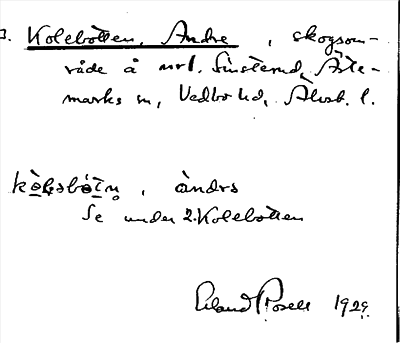 3. Kolebotten, Andre, skogsom-
råde å nrl. Finsterud, Åre-
marks sn, Vedbo hd, Älvsb. l.
kò̀ḷəbótn̥, àndrə
Se under 2. Kolebotten
Erland Rosell 1929